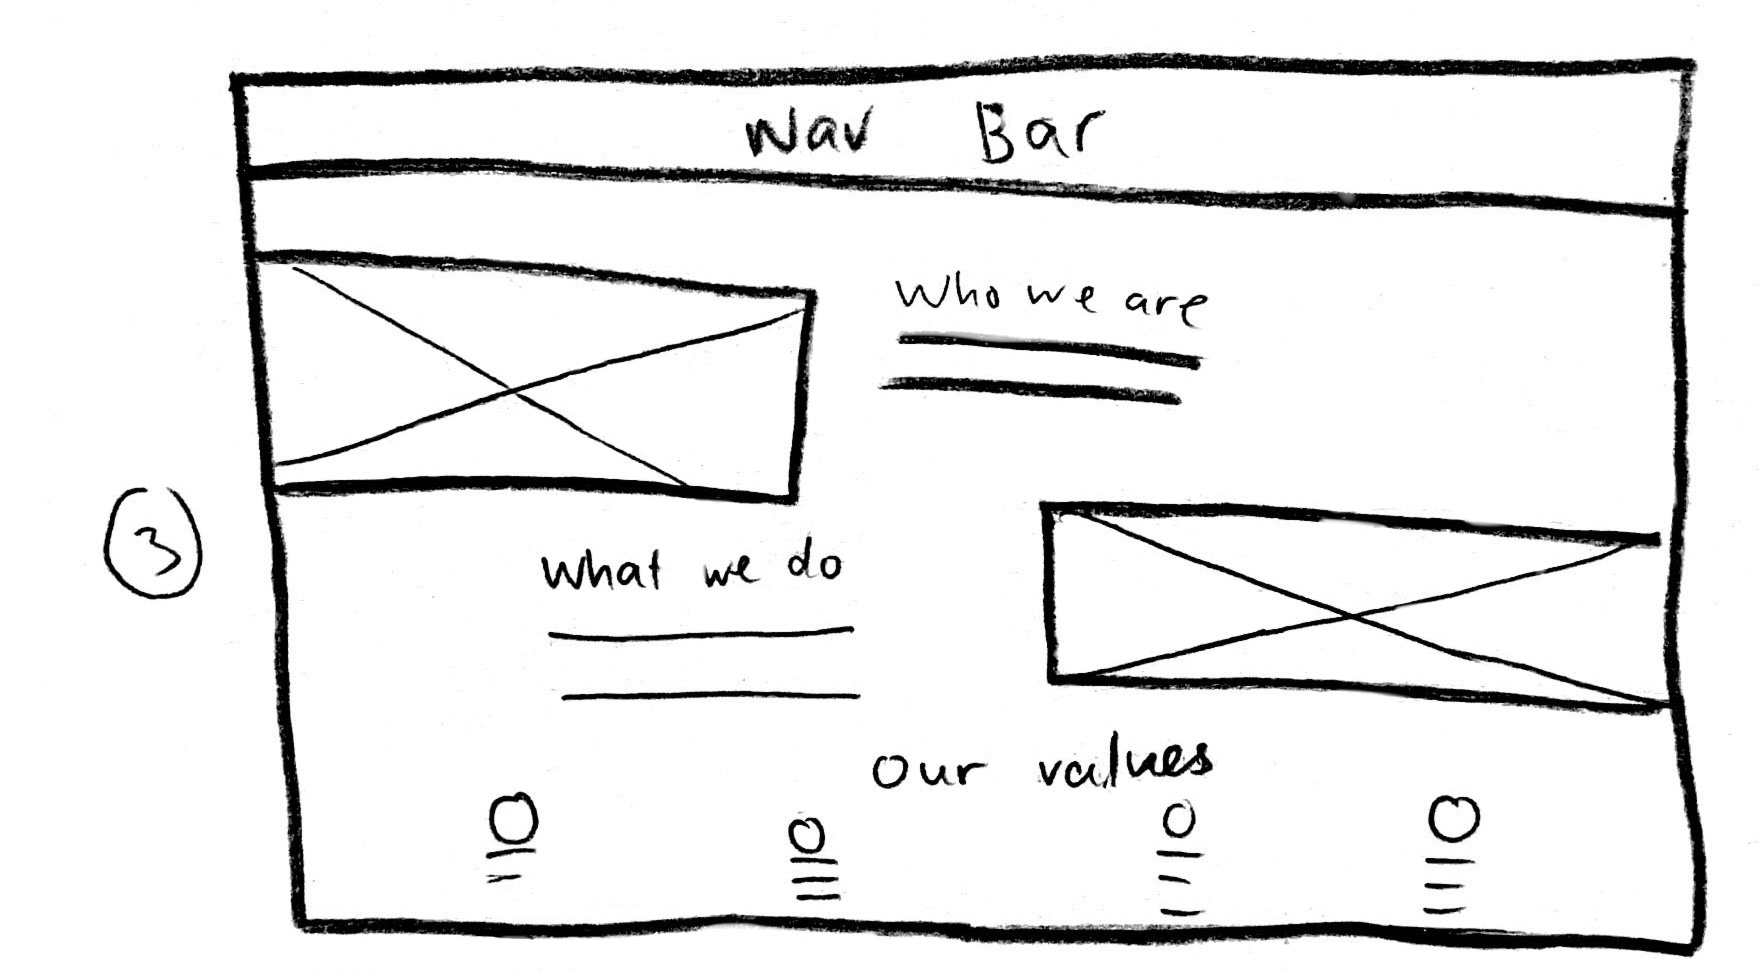 Nav Bar
Who we are
3
What we do
Our values